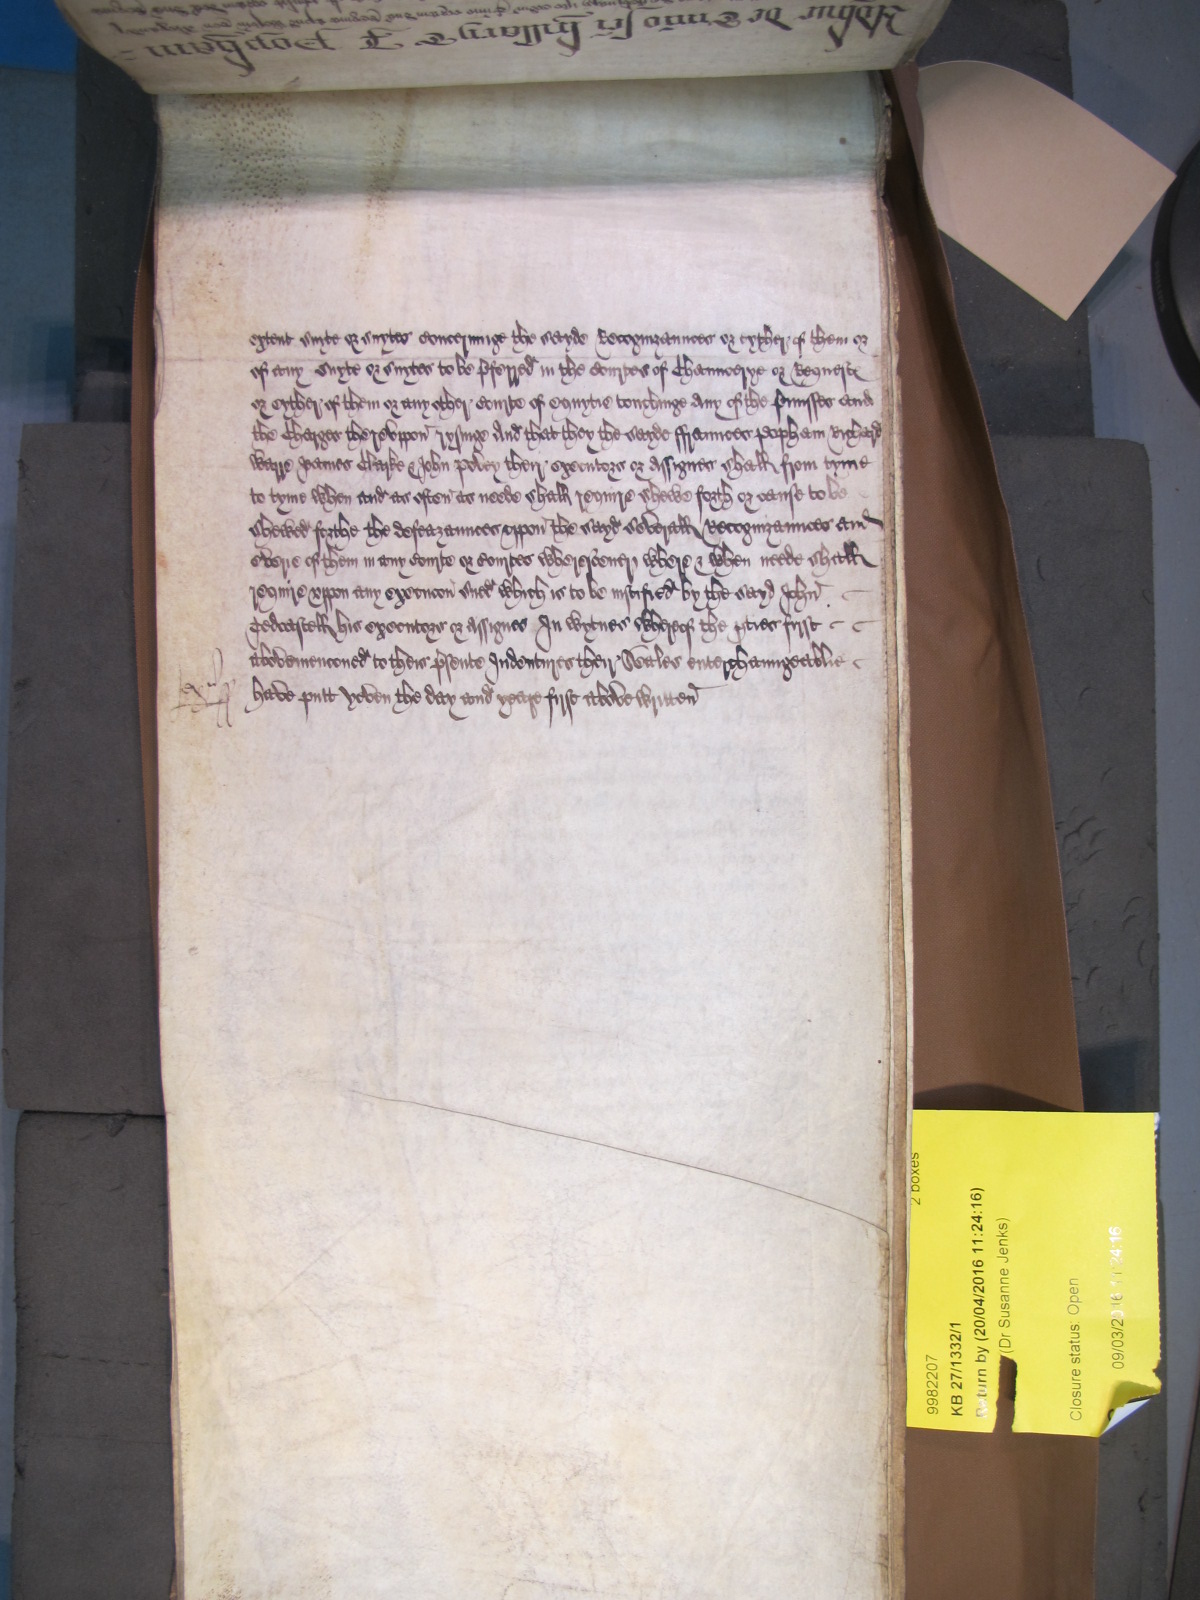 extent suyte or suytes concerninge the sayde Recognizaunces or eyther of them or
of any suyte or suytes to be pferred in the courtes of Chauncerye or Requeste
or eyther of them or any other courte of equytie touchinge any of the pmisses and
the Charges thereuppon rysinge And that they the sayde ffraunces Popham Richard
Warre James Clarke & John their executors or assignes shall from tyme
to tyme when and as often as neede shall require shewe forth or cause to be
shewed forthe the defeazaunces uppon the sayd severall Recognizaunces and
every of them in any courte or courtes where & when neede shall
require uppon any execucon sued which is to be justified by the sayd John
his executors or assignes In wytnes wherof the pties first
abovemenconed to theis psente Indentures their Seales enterchaungeablie
have putt yeven the day and yeare first above written
De Hillary Popham
2 boxes
9982207
KB 27/1332/1
Return by (20/04/2016 11:24:16)
(Dr Susanne Jenks)
Closure status: Open
09/03/2016 11:24:16